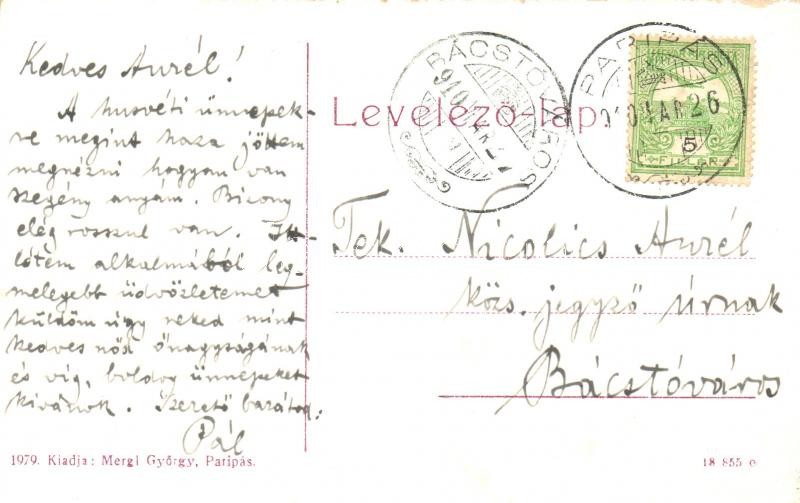 Kedves Aurél!
A husvéti ünnepek-
re megint haza jöttem
megnézni hogyan van
szegény anyám. Bizony
elég rosszul van. Itt-
létem alkalmából leg-
melegebb üdvözletemet
küldöm úgy neked mint
kedves nőd őnagyságának
és víg, boldog ünnepeket
kivánok. Szerető barátod:
Pál
1979. Kiadja: Mergl György, Paripás.
BÁCSTÓVÁROS
910 MAR 27
PARIPÁS
910 MAR 26
5
FILLÉR
Levelező-lap.
Tek. Nicolics Aurél
közs. jegyző úrnak
Bácstóváros
18 855 c